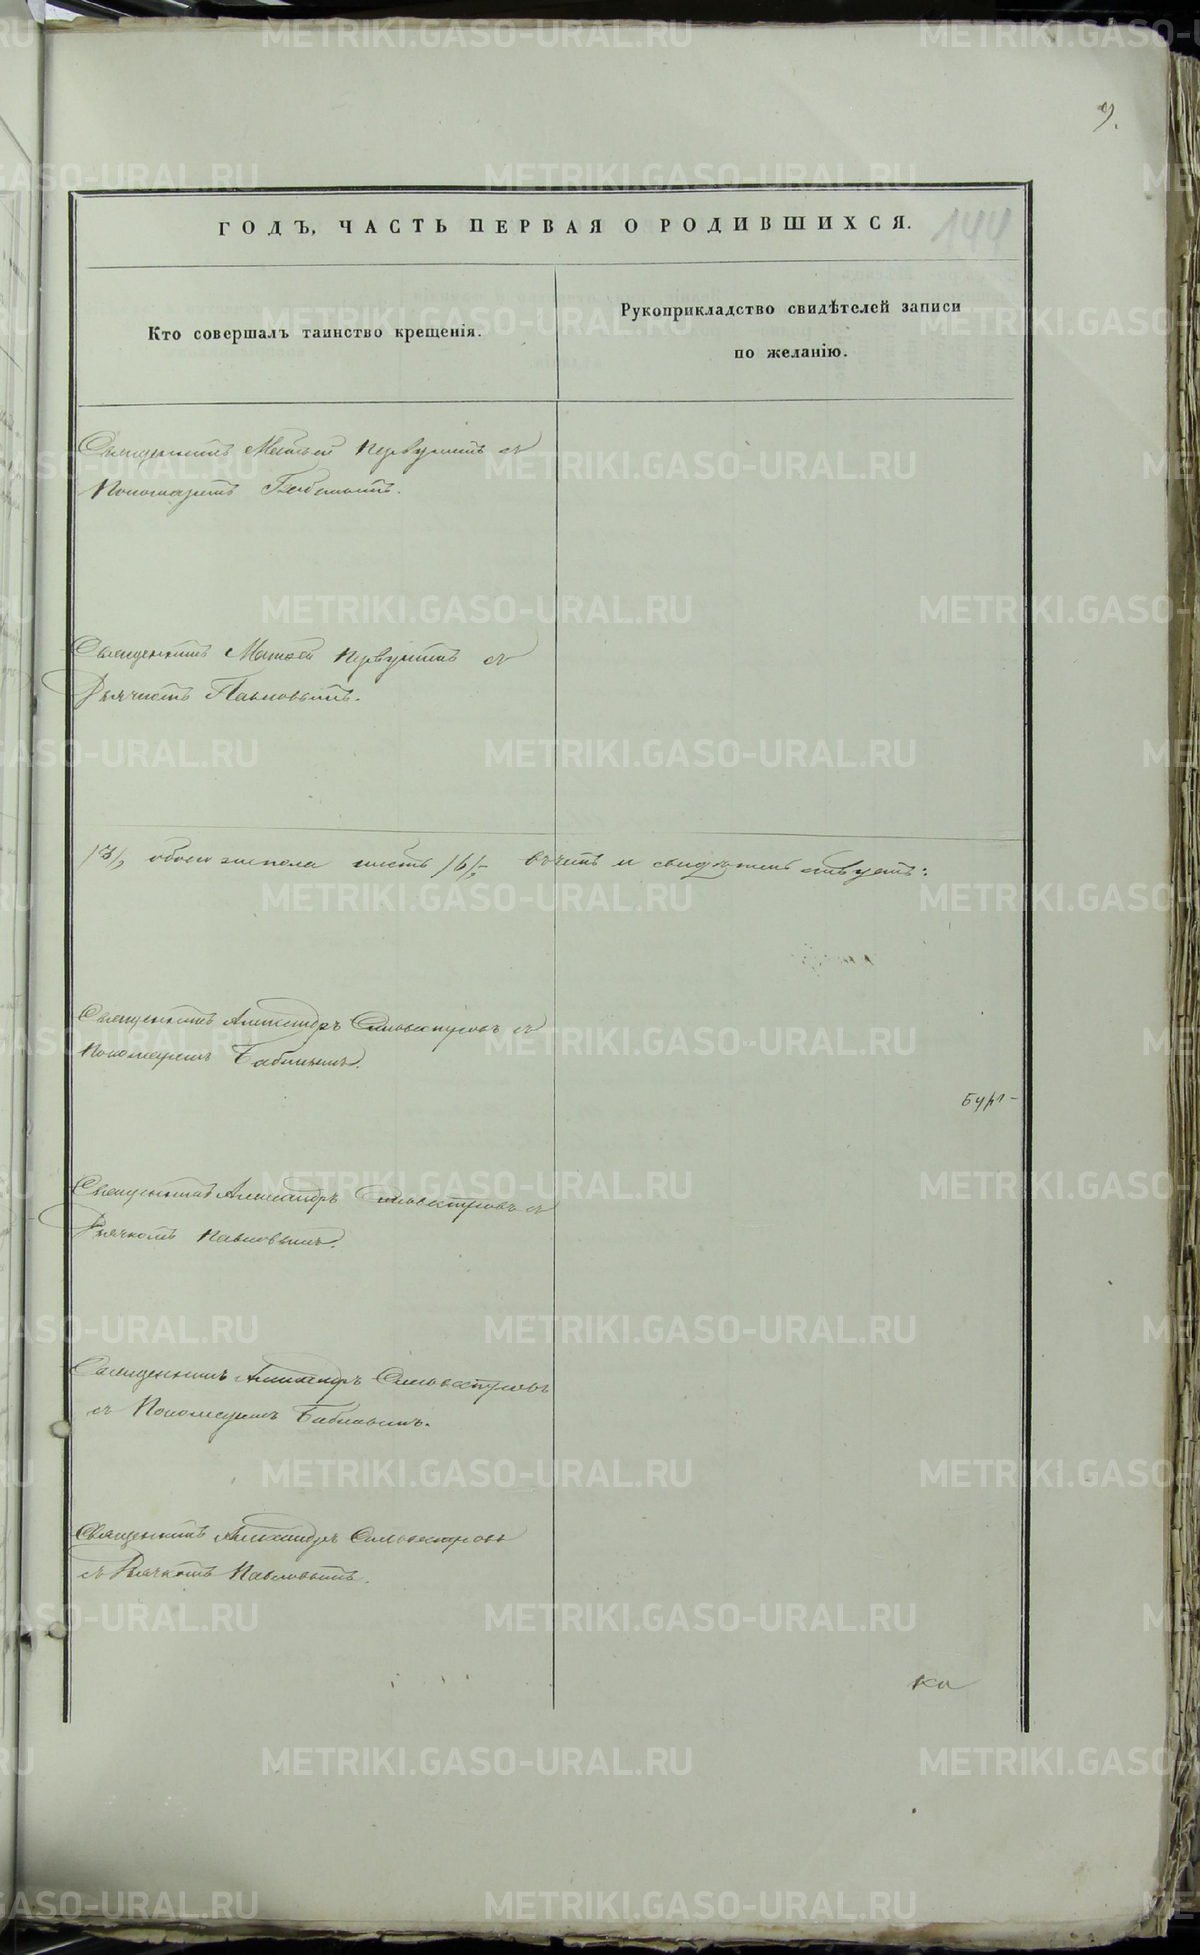 9.
ГОДЪ, ЧАСТЬ ПЕРВАЯ О РОДИВШИХСЯ. 144
Кто совершалъ таинство крещенія.
Рукоприкладство свидѣтелей записи
по желанію.
Священникъ Матѳей Первушинъ съ
Пономаремъ Бабинымъ.
Священникъ Матѳей Первушинъ съ
Дьячкомъ Павловымъ.
/3/, обоего пола шесть /6/,
Священникъ Александръ Сильвестровъ съ
Пономаремъ Бабинымъ.
Священникъ Александръ Сильвестровъ съ
Дьячкомъ Павловымъ.
Священникъ Александръ Сильвестровъ
съ Пономаремъ Бабинымъ.
Священникъ Александръ Сильвестровъ
съ Дьячкомъ Павловымъ.
METRIKI.GASO-URAL.RU